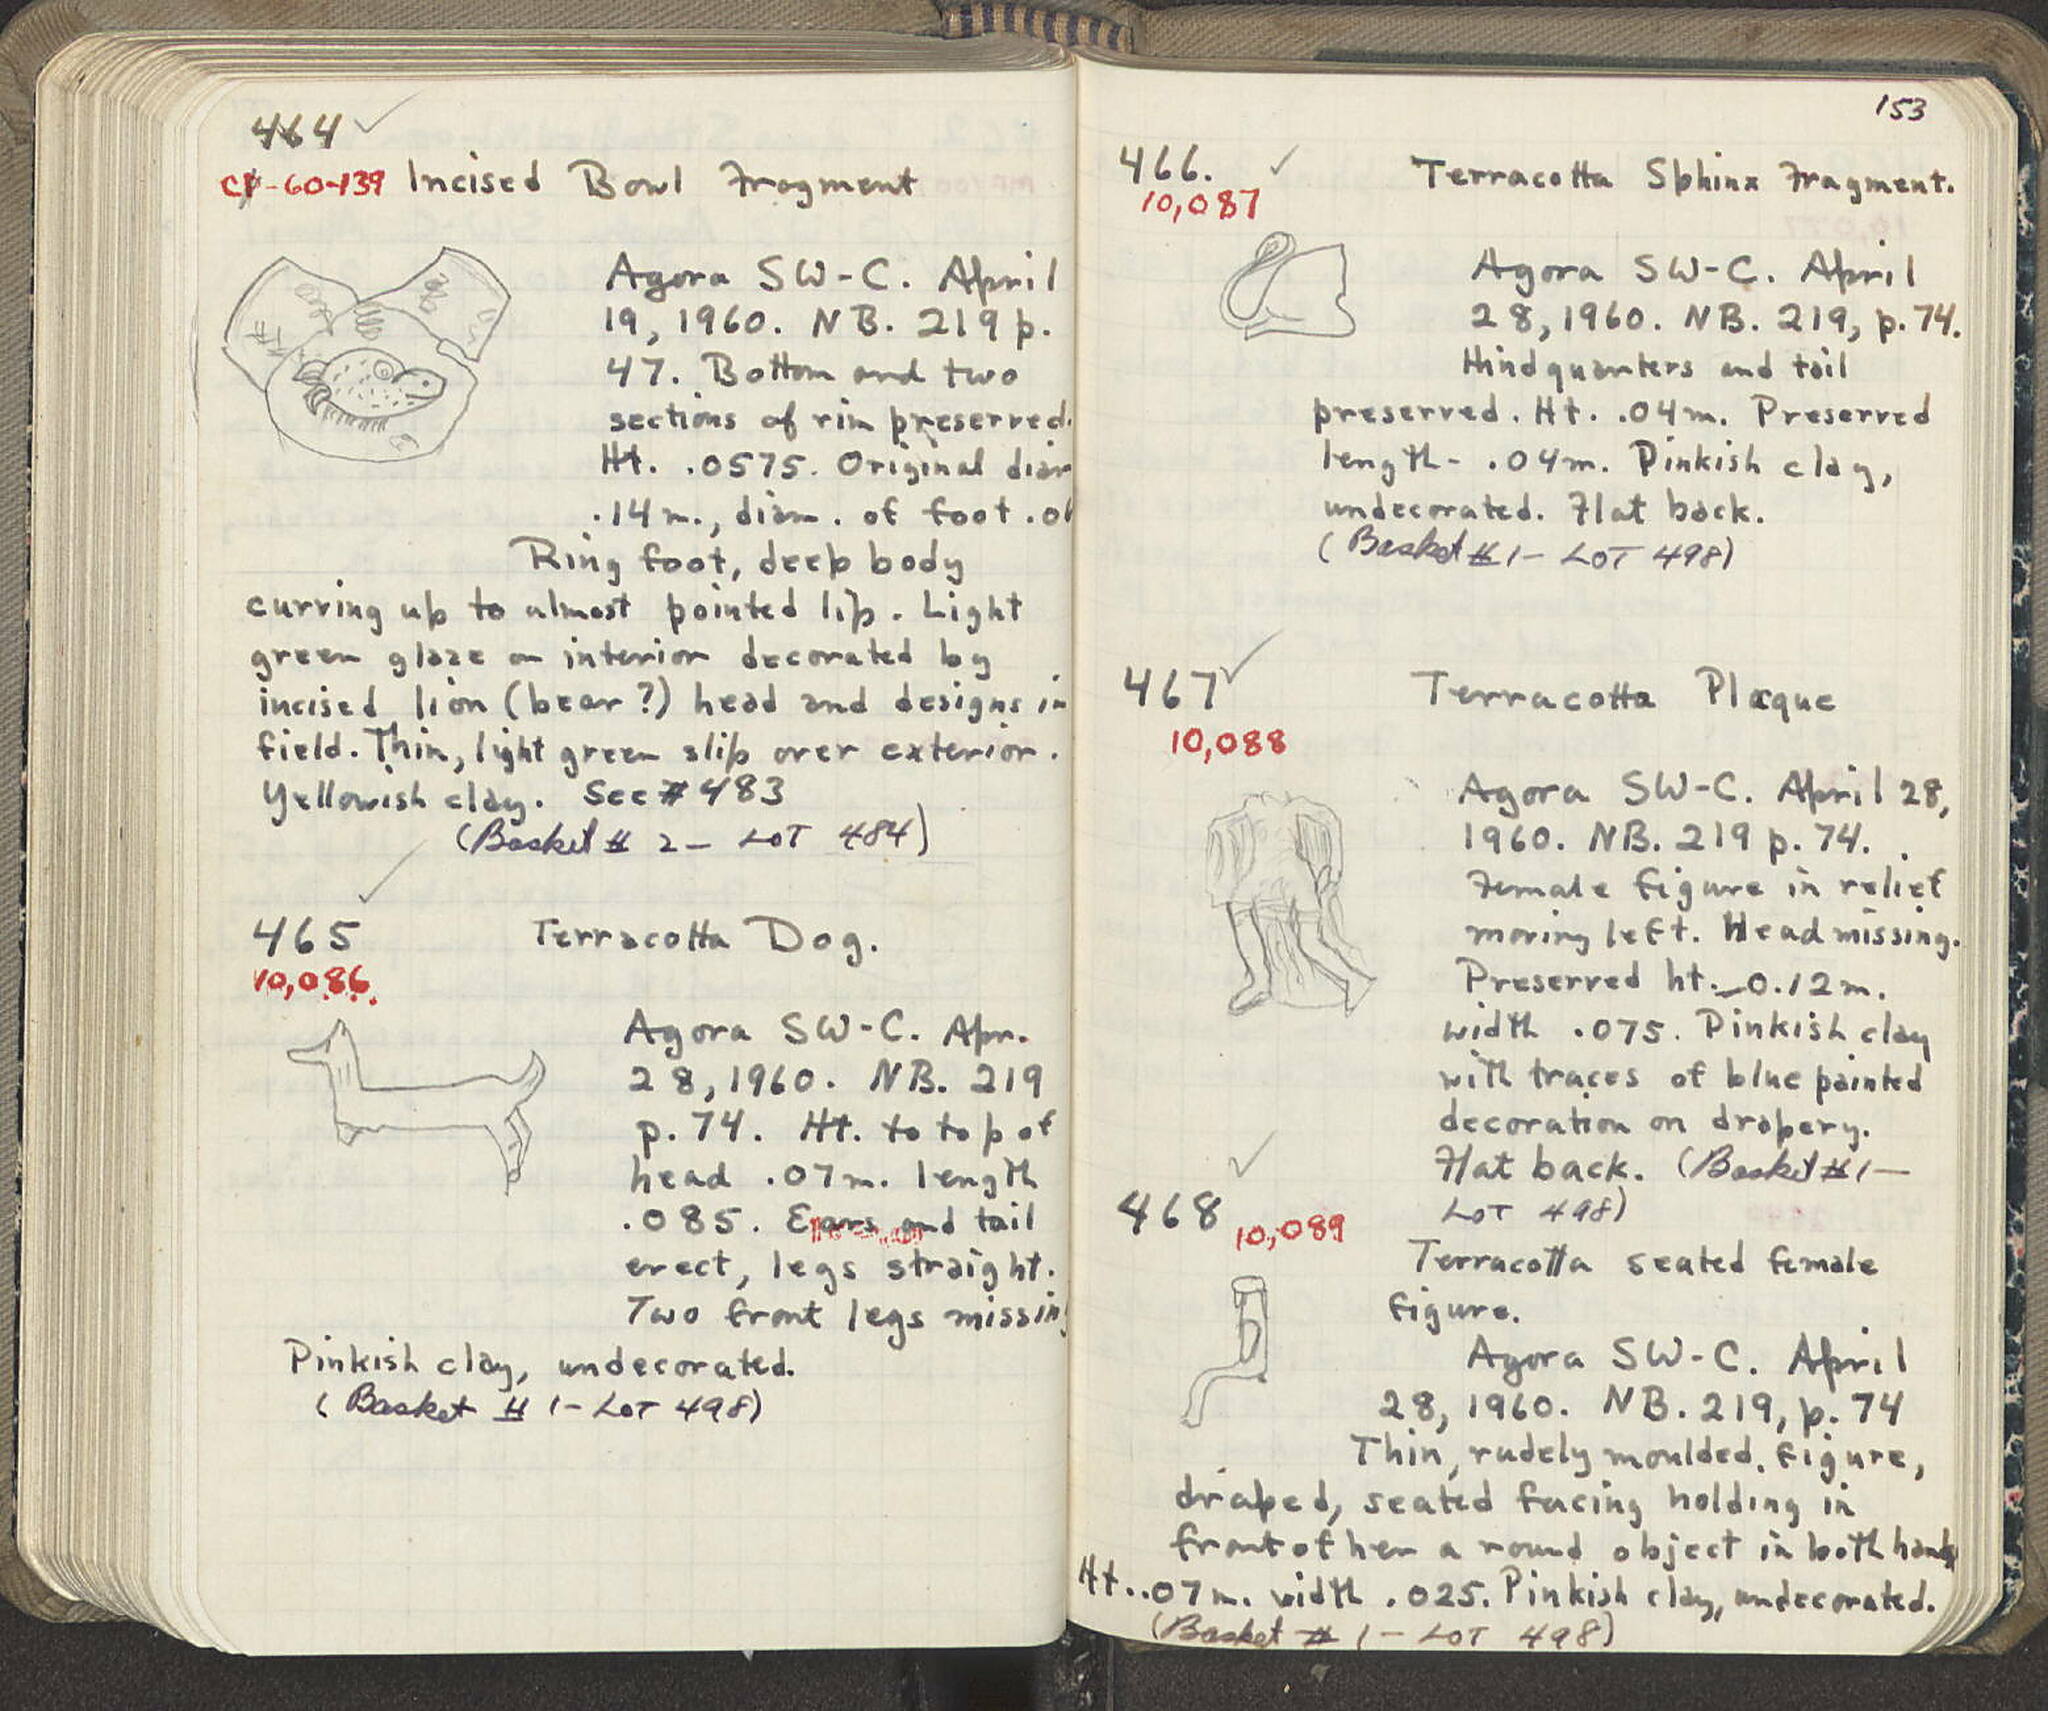 464 ✓
C-60-139 Incised Bowl Fragment
Agora SW-C. April
19, 1960. NB. 219 p.
47. Bottom and two
sections of rim preserved.
Ht. .0575. Original diam
.14m., diam. of foot
Ring foot, deep body
curving up to almost pointed lip. Light
green glaze on interior decorated by
incised lion (bear?) head and designs in
field. Thin, light green slip over exterior.
Yellowish clay. See #483
(Basket # 2 - LOT 484)
465 ✓ Terracotta Dog.
10,086.
Agora SW-C. Apr.
28, 1960. NB. 219
p. 74. Ht. to top of
head .07m. length
.085. Ears and tail
erect, legs straight.
Two front legs missing
Pinkish clay, undecorated.
(Basket # 1 - LOT 498)
153
466. ✓ Terracotta Sphinx Fragment.
10,087
Agora SW-C. April
28, 1960. NB. 219, p. 74.
Hindquarters and tail
preserved. Ht. .04m. Preserved
length - .04m. Pinkish clay,
undecorated. Flat back.
(Basket # 1 - LOT 498)
467 ✓ Terracotta Plaque
10,088
Agora SW-C. April 28,
1960. NB. 219 p. 74.
Female figure in relief
moving left. Head missing.
Preserved ht. - 0.12m.
width .075. Pinkish clay
with traces of blue painted
decoration on drapery.
Flat back. (Basket # 1 -
LOT 498)
468 ✓ 10,089
Terracotta seated female
figure.
Agora SW-C. April
28, 1960. NB. 219, p. 74
Thin, rudely moulded. figure,
draped, seated facing holding in
front of her a round object in both hands
Ht. .07m. width .025. Pinkish clay, undecorated.
(Basket # 1 - LOT 498)